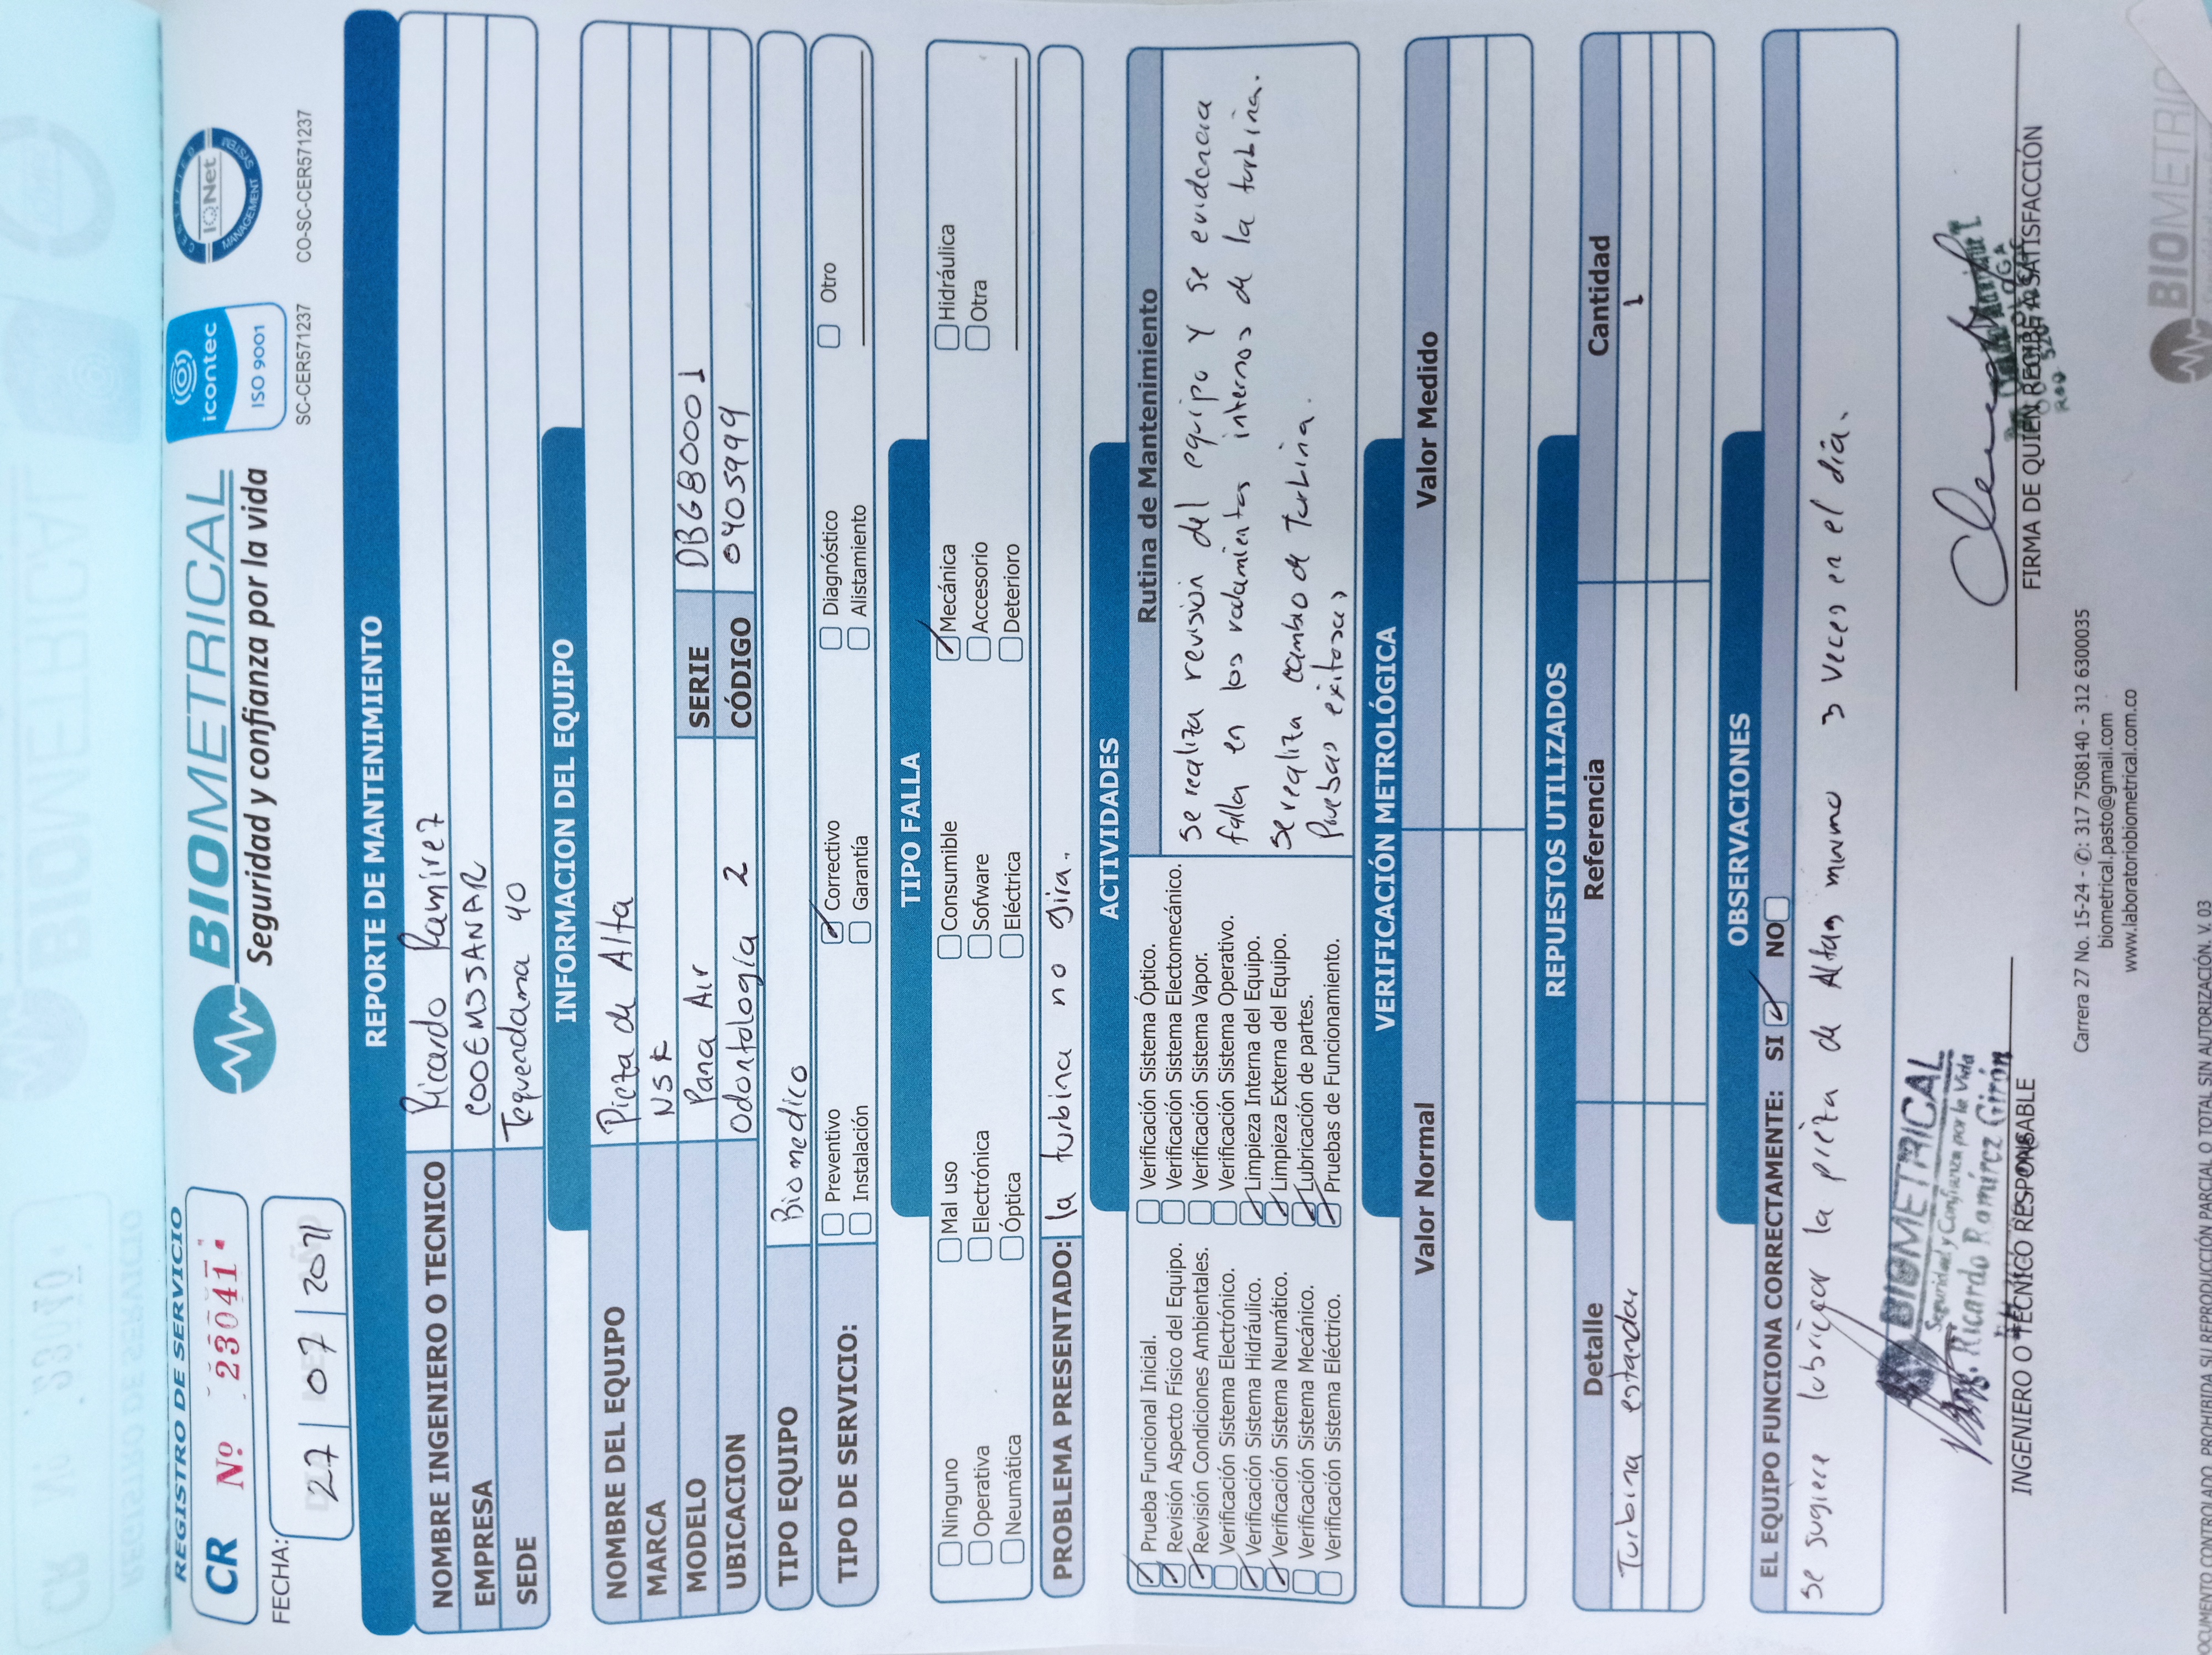 REGISTRO DE SERVICIO
CR Nº 23041
FECHA:
27 | 07 | 2021
BIOMETRICAL
Seguridad y confianza por la vida
icontec
ISO 9001
SC-CER571237
CERTIFIED
IQNet
MANAGEMENT SYSTEM
CO-SC-CER571237
REPORTE DE MANTENIMIENTO
NOMBRE INGENIERO O TECNICO Ricardo Ramirez
EMPRESA COOEMSSANAR
SEDE Tequendama 40
INFORMACION DEL EQUIPO
NOMBRE DEL EQUIPO Pieza de Alta
MARCA NSK
MODELO Pana Air SERIE DBG80001
UBICACION Odontología 2 CÓDIGO 0405999
TIPO EQUIPO Biomedico
TIPO DE SERVICIO:
Preventivo Correctivo Diagnóstico Otro
Instalación Garantía Alistamiento
TIPO FALLA
Ninguno Mal uso Consumible Mecánica Hidráulica
Operativa Electrónica Sofware Accesorio Otra
Neumática Óptica Eléctrica Deterioro
PROBLEMA PRESENTADO: la turbina no gira.
ACTIVIDADES
Prueba Funcional Inicial.
Revisión Aspecto Físico del Equipo.
Revisión Condiciones Ambientales.
Verificación Sistema Electrónico.
Verificación Sistema Hidráulico.
Verificación Sistema Neumático.
Verificación Sistema Mecánico.
Verificación Sistema Eléctrico.
Verificación Sistema Óptico.
Verificación Sistema Electomecánico.
Verificación Sistema Vapor.
Verificación Sistema Operativo.
Limpieza Interna del Equipo.
Limpieza Externa del Equipo.
Lubricación de partes.
Pruebas de Funcionamiento.
Rutina de Mantenimiento
se realiza revisión del equipo y se evidencia
falla en los rodamientos internos de la turbina.
se realiza cambio de Turbina.
Pruebas exitosas
VERIFICACIÓN METROLÓGICA
Valor Normal Valor Medido
REPUESTOS UTILIZADOS
Detalle Referencia Cantidad
Turbina estandar 1
OBSERVACIONES
EL EQUIPO FUNCIONA CORRECTAMENTE: SI NO
se sugiere lubricar la pieza de Alta minimo 3 veces en el día.
BIOMETRICAL
Seguridad y Confianza por la Vida
Ing. Ricardo Ramírez Girón
INGENIERO O TÉCNICO RESPONSABLE
ODONTOLOGA
FIRMA DE QUIEN RECIBE A SATISFACCIÓN
Carrera 27 No. 15-24 - ✆: 317 7508140 - 312 6300035
biometrical.pasto@gmail.com
www.laboratoriobiometrical.com.co
BIOMETRIC
DOCUMENTO CONTROLADO, PROHIBIDA SU REPRODUCCIÓN PARCIAL O TOTAL SIN AUTORIZACIÓN. V. 03